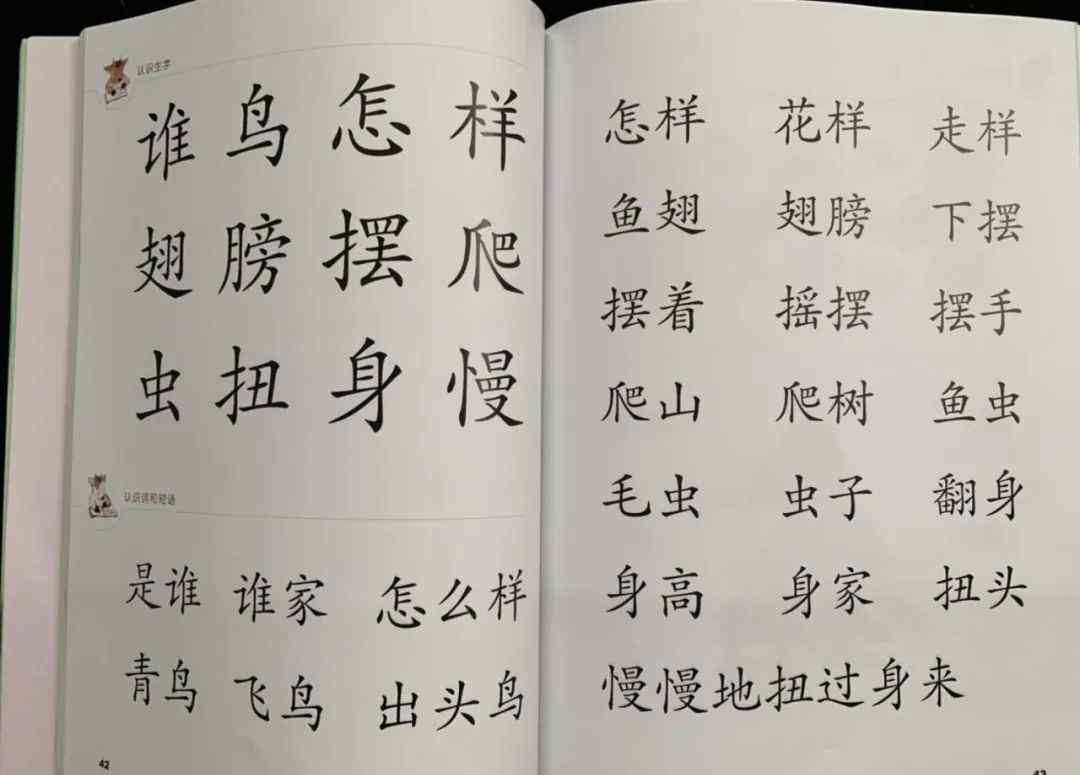 认识生字
谁 鸟 怎 样
翅 膀 摆 爬
虫 扭 身 慢
认识词和短语
是谁 谁家 怎么样
青鸟 飞鸟 出头鸟
42
怎样 花样 走样
鱼翅 翅膀 下摆
摆着 摇摆 摆手
爬山 爬树 鱼虫
毛虫 虫子 翻身
身高 身家 扭头
慢慢地扭过身来